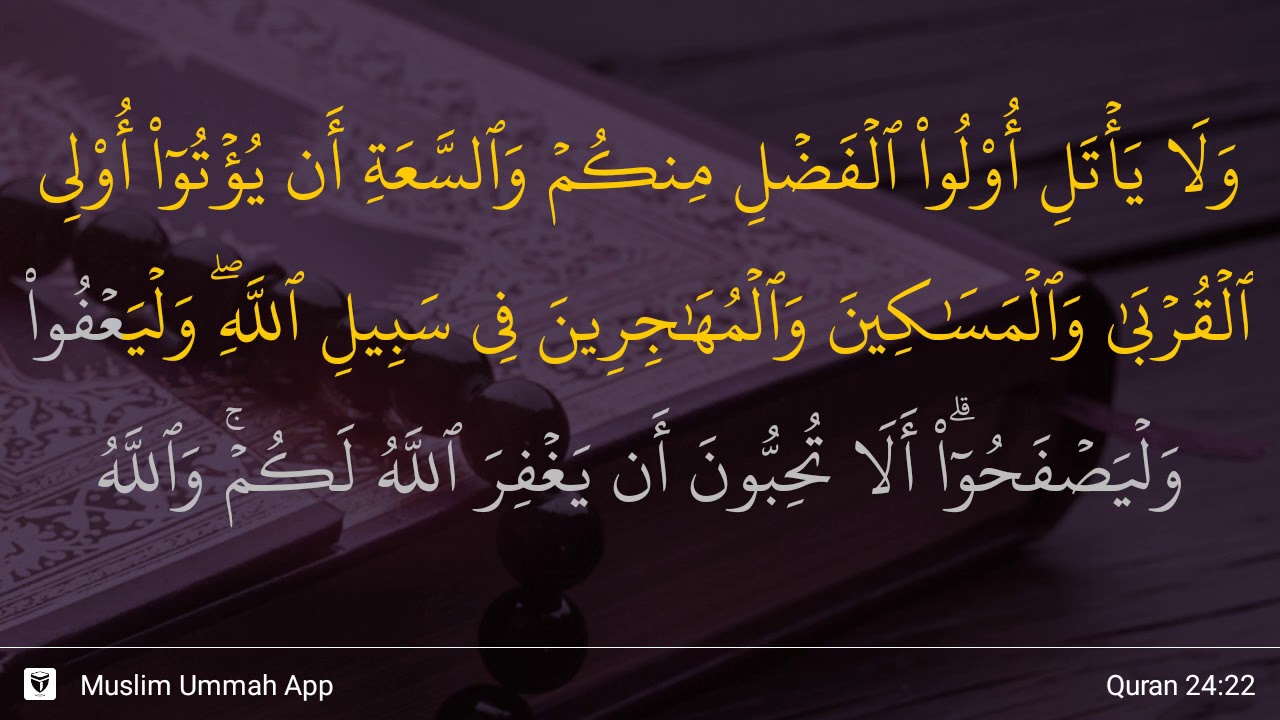 وَلَا يَأۡتَلِ أُوْلُواْ ٱلۡفَضۡلِ مِنكُمۡ وَٱلسَّعَةِ أَن يُؤۡتُوٓاْ أُوْلِي
ٱلۡقُرۡبَىٰ وَٱلۡمَسَٰكِينَ وَٱلۡمُهَٰجِرِينَ فِي سَبِيلِ ٱللَّهِۖ وَلۡيَعۡفُواْ
وَلۡيَصۡفَحُوٓاْۗ أَلَا تُحِبُّونَ أَن يَغۡفِرَ ٱللَّهُ لَكُمۡۚ وَٱللَّهُ
Muslim Ummah App
Quran 24:22